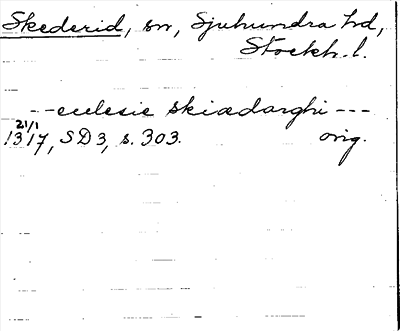 Skederid, sn, Sjuhundra hd,
Stockh. l.
---ecclesie skiædarghi---
21/1
1317, SD3, s. 303. orig.